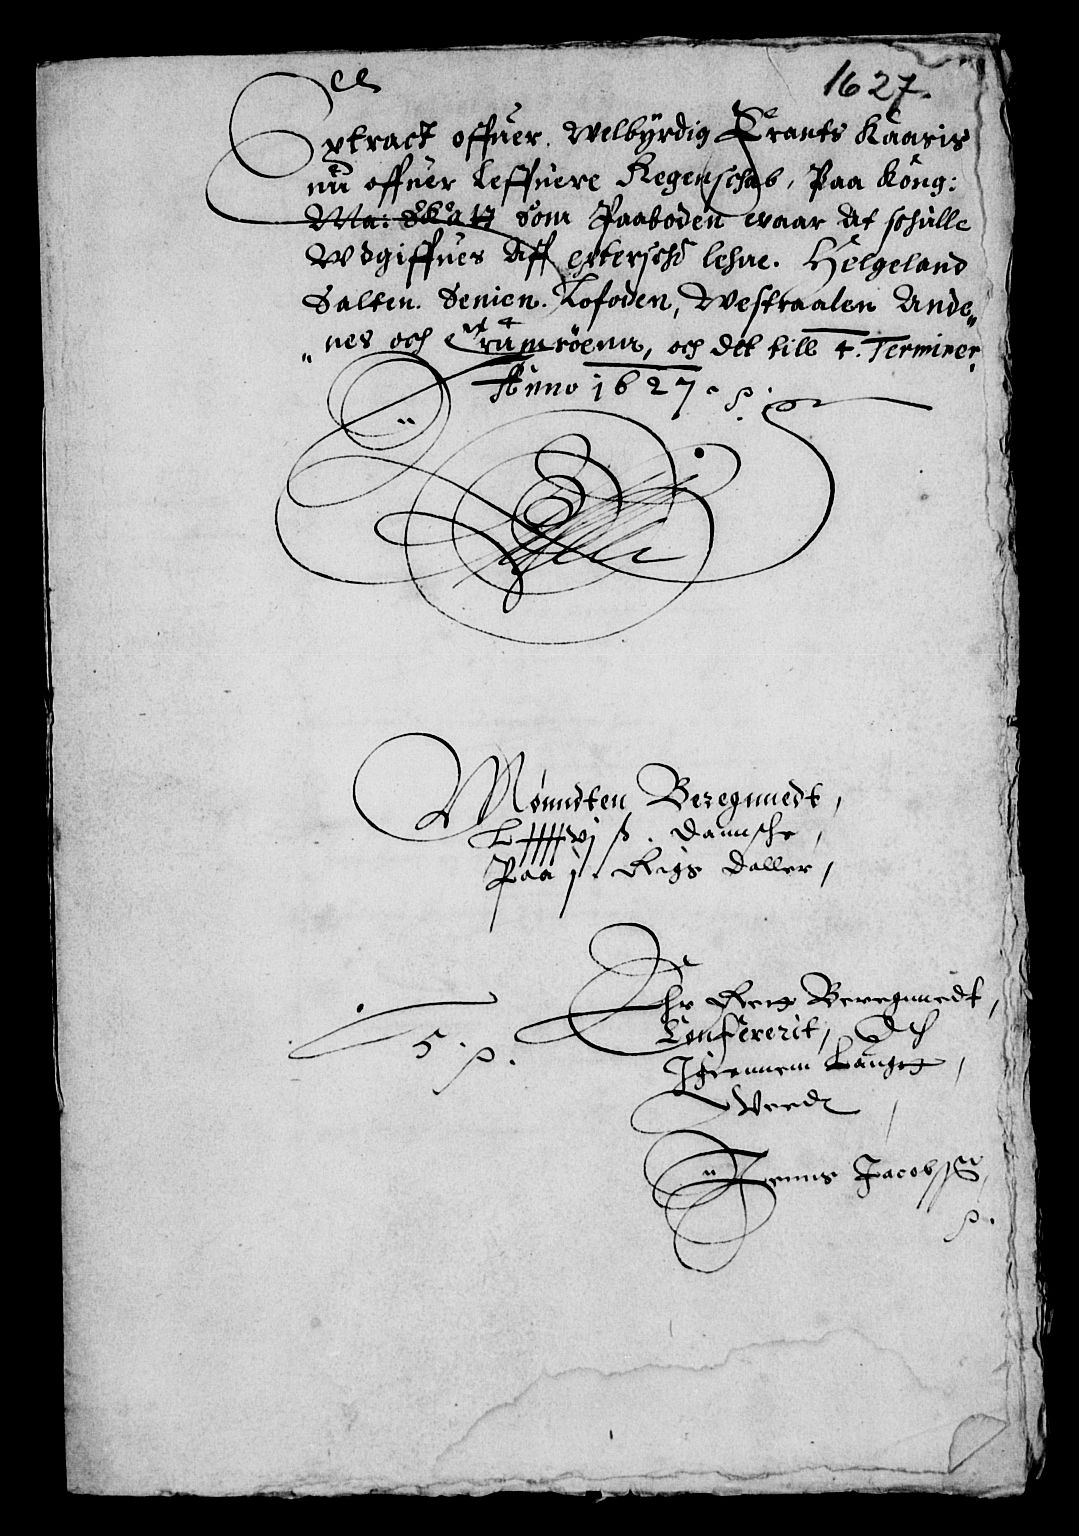 1627.
Extract offuer. Welbÿrdig Frants Kaasis
nu offuer Leffuere Regenschab, Paa Kong:
Ma: Skat som Paaboden waar at schulle
Wdgiffues Aff effterschr lehne. Helgeland
Salten. Senien. Lofoden, Westraalen Ande„
„nes och Trumsöenn, och det till 4. Terminer,
Anno 1627. p.
Mönndten Beregnnedt,
Lxxxxvj ß. Dannsche,
Paa j. Rigs Daller,
Ehr Rett Beregnnedt,
Confererit, Och
Igiennem Langtt
Werdt,
5. p.
Jenns Jacobss
p.